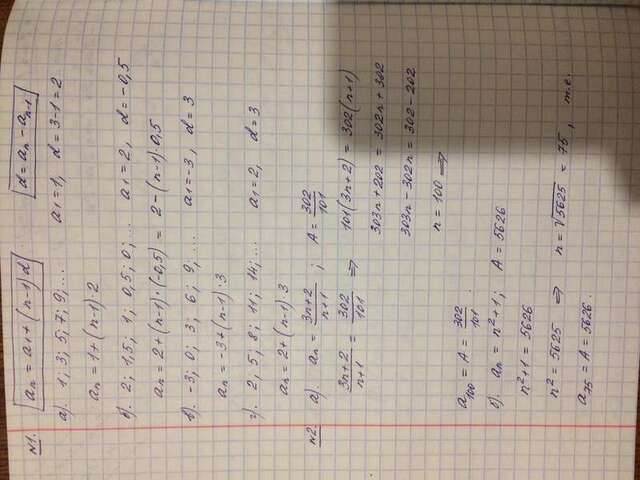 №1. aₙ = a₁ + (n-1) d d = aₙ - aₙ₋₁
а). 1; 3; 5; 7; 9; ... a₁ = 1, d = 3-1 = 2
aₙ = 1 + (n-1)·2
б). 2; 1,5; 1; 0,5; 0; ... a₁ = 2, d = -0,5
aₙ = 2 + (n-1)·(-0,5) = 2-(n-1)·0,5
в). -3; 0; 3; 6; 9; ... a₁ = -3, d = 3
aₙ = -3 + (n-1)·3
г). 2; 5; 8; 11; 14; ... a₁ = 2, d = 3
aₙ = 2 + (n-1)·3
№2. а). aₙ = (3n+2)/(n+1) ; A = 302/101
(3n+2)/(n+1) = 302/101 ⇒ 101(3n+2) = 302(n+1)
303n + 202 = 302n + 302
303n - 302n = 302 - 202
n = 100 ⇒
a₁₀₀ = A = 302/101 .
б). aₙ = n²+1; A = 5626
n²+1 = 5626
n² = 5625 ⇒ n = √5625 = 75, т.е.
a₇₅ = A = 5626.